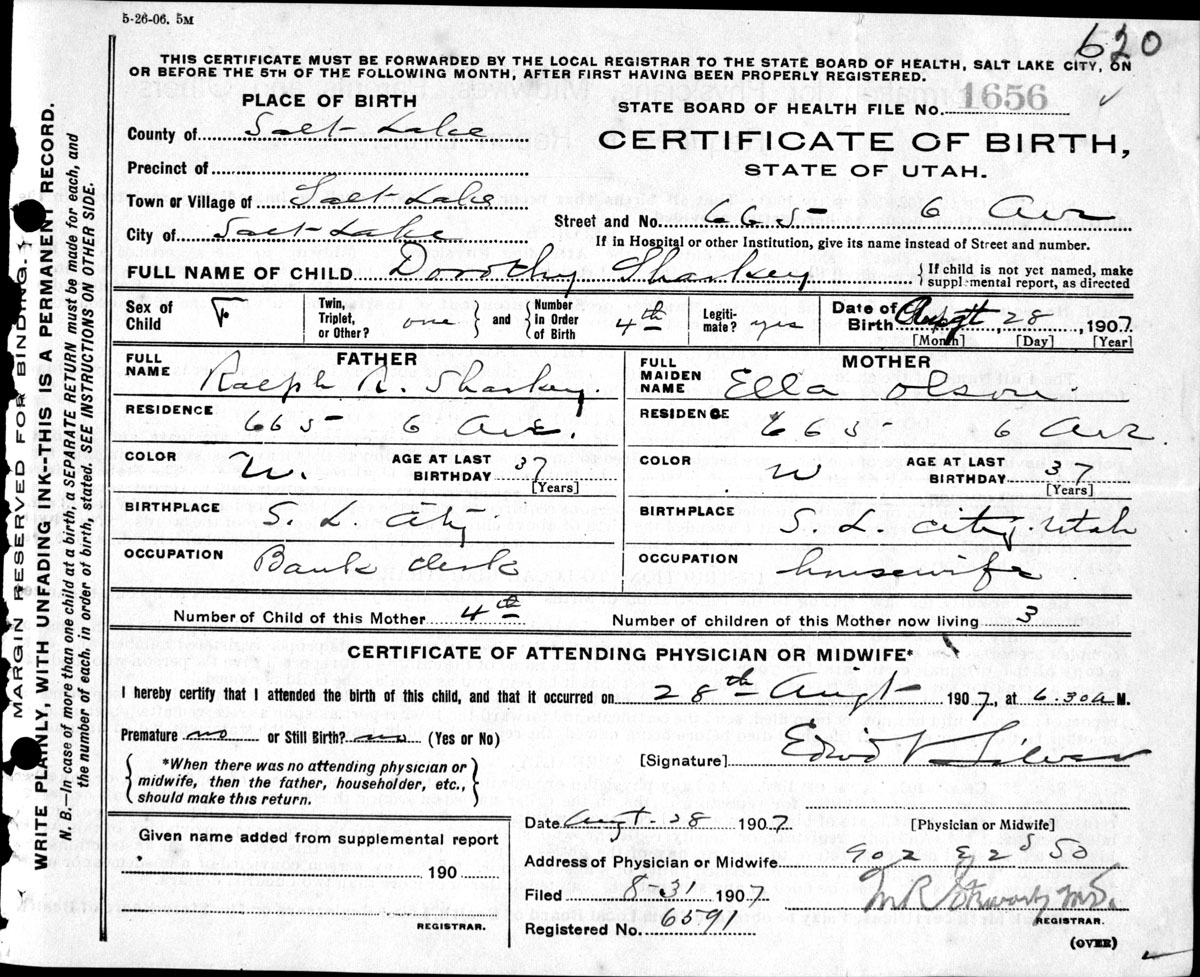 5-26-06. 5M
620
THIS CERTIFICATE MUST BE FORWARDED BY THE LOCAL REGISTRAR TO THE STATE BOARD OF HEALTH, SALT LAKE CITY, ON
OR BEFORE THE 5TH OF THE FOLLOWING MONTH, AFTER FIRST HAVING BEEN PROPERLY REGISTERED.
PLACE OF BIRTH
STATE BOARD OF HEALTH FILE No. 1656
County of Salt Lake
CERTIFICATE OF BIRTH,
STATE OF UTAH.
Precinct of
Town or Village of Salt Lake
Street and No. 665 6 Ave
City of Salt Lake
If in Hospital or other Institution, give its name instead of Street and number.
FULL NAME OF CHILD Dorothy Sharkey
{ If child is not yet named, make supplemental report, as directed
Sex of Child F
Twin, Triplet, or Other? one } and { Number in Order of Birth 4th
Legitimate? yes
Date of Birth Augt 28, 1907
[Month] [Day] [Year]
FATHER
FULL NAME Ralph R. Sharkey.
RESIDENCE 665 6 Ave.
COLOR W. AGE AT LAST BIRTHDAY 37 [Years]
BIRTHPLACE S. L. City
OCCUPATION Bank clerk
MOTHER
FULL MAIDEN NAME Ella Olson
RESIDENCE 665 6 Ave.
COLOR W AGE AT LAST BIRTHDAY 37 [Years]
BIRTHPLACE S. L. City. Utah
OCCUPATION housewife
Number of Child of this Mother 4th
Number of children of this Mother now living 3
CERTIFICATE OF ATTENDING PHYSICIAN OR MIDWIFE*
I hereby certify that I attended the birth of this child, and that it occurred on 28th Augt 1907, at 6.30 a M.
Premature no or Still Birth? no (Yes or No)
[Signature] Edwd
{ *When there was no attending physician or midwife, then the father, householder, etc., should make this return. }
Date Augt. 28 1907
[Physician or Midwife]
Given name added from supplemental report
190
REGISTRAR.
Address of Physician or Midwife 902 E 2d So
Filed 8 31 1907
M.D.
REGISTRAR.
Registered No. 6591
(OVER)
MARGIN RESERVED FOR BINDING.
WRITE PLAINLY, WITH UNFADING INK--THIS IS A PERMANENT RECORD.
N. B.—In case of more than one child at a birth, a SEPARATE RETURN must be made for each, and
the number of each, in order of birth, stated. SEE INSTRUCTIONS ON OTHER SIDE.